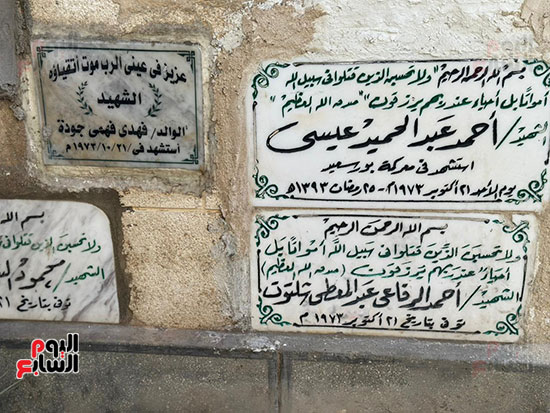 عزيز في عيني الرب موت أتقياؤه
الشهيد
الوالد/ فهدى فهمى جودة
أستشهد فى ٢١/١٠/١٩٧٣م
بسم الله الرحمن الرحيم "ولا تحسبن الذين قتلوا في سبيل الله
أمواتا بل أحياء عند ربهم يرزقون" صدق الله العظيم"
الشهيد/ أحمد عبد الحميد عيسى
استشهد في معركة بور سعيد
يوم الأحد ٢١ أكتوبر ١٩٧٣م - ٢٥ رمضان ١٣٩٣هـ
بسم الله الرحمن الرحيم
ولا تحسبن الذين قتلوا في سبيل الله أمواتا بل
أحياء عند ربهم يرزقون (صدق الله العظيم)
الشهيد/ أحمد الرفاعي عبد المعطى شلتوت
توفى بتاريخ ٢١ أكتوبر ١٩٧٣ م
بسم الله
ولا تحسبن الذين قتلوا في
الشهيد/ محمود
توفى بتاريخ ٢١
اليوم
السابع